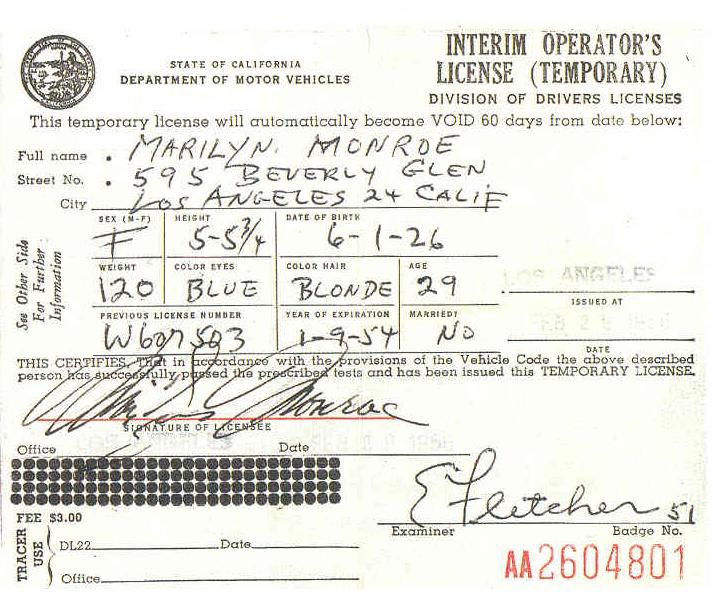 STATE OF CALIFORNIA
DEPARTMENT OF MOTOR VEHICLES
INTERIM OPERATOR'S
LICENSE (TEMPORARY)
DIVISION OF DRIVERS LICENSES
This temporary license will automatically become VOID 60 days from date below:
Full name . MARILYN. MONROE
Street No. . 595 BEVERLY GLEN
City LOS ANGELES 24 CALIF
See Other Side
For Further
Information
SEX (M-F) HEIGHT DATE OF BIRTH
F 5-5 3/4 6-1-26
WEIGHT COLOR EYES COLOR HAIR AGE
120 BLUE BLONDE 29
LOS ANGELES
ISSUED AT
PREVIOUS LICENSE NUMBER YEAR OF EXPIRATION MARRIED?
W607503 1-9-54 NO
FEB
DATE
THIS CERTIFIES, That in accordance with the provisions of the Vehicle Code the above described
person has successfully passed the prescribed tests and has been issued this TEMPORARY LICENSE.
Marilyn Monroe
SIGNATURE OF LICENSEE
Office LOS ANGELES Date 1956
FEE $3.00
E Fletcher 51
Examiner Badge No.
TRACER
USE
DL22 Date
Office
AA2604801